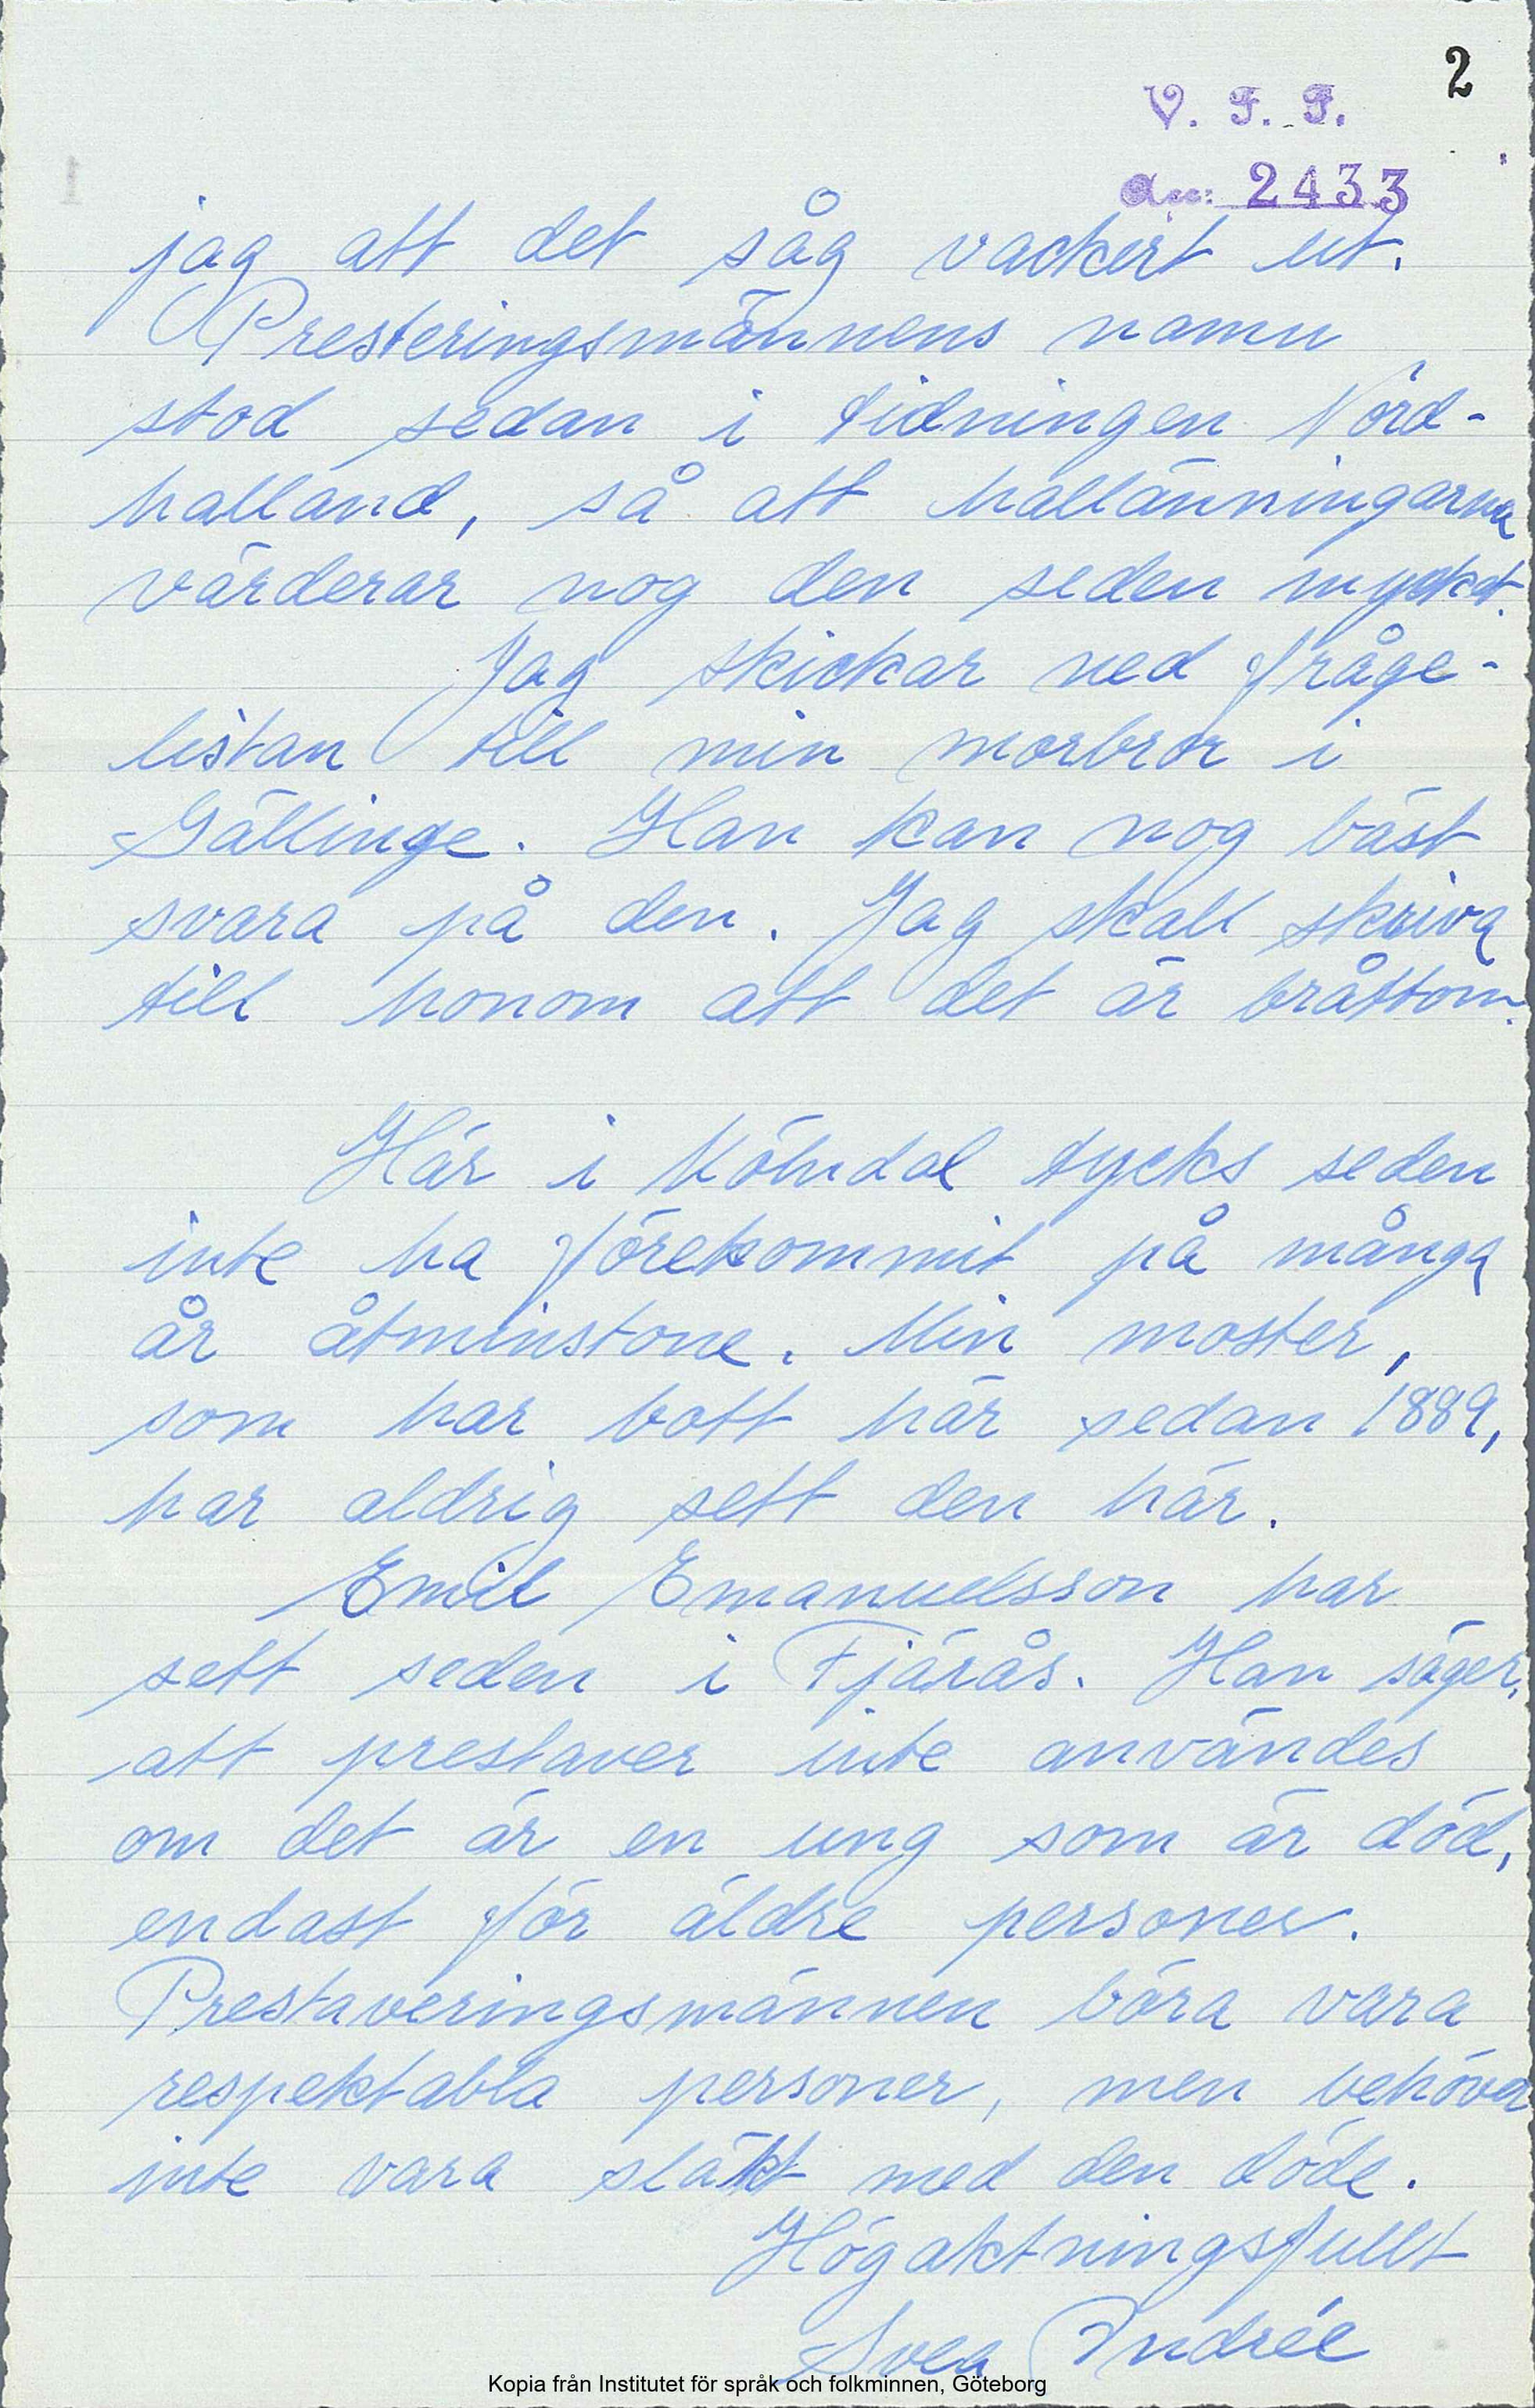 2
V. F. F.
Acc: 2433
jag att det såg vackert ut.
Presteringsmännens namn
stod sedan i tidningen Nord-
halland, så att hallänningarna
värderar nog den seden mycket.
Jag skickar ned fråge-
listan till min morbror i
Gällinge. Han kan nog bäst
svara på den. Jag skall skriva
till honom att det är bråttom.
Här i Mölndal tycks seden
inte ha förekommit på många
år åtminstone. Min moster,
som har bott här sedan 1889,
har aldrig sett den här.
Emil Emanuelsson har
sett seden i Fjärås. Han säger,
att prestaver inte användes
om det är en ung som är död,
endast för äldre personer.
Prestaveringsmännen böra vara
respektabla personer, men behöver
inte vara släkt med den döde.
Högaktningsfullt
Svea Andrée
Kopia från Institutet för språk och folkminnen, Göteborg